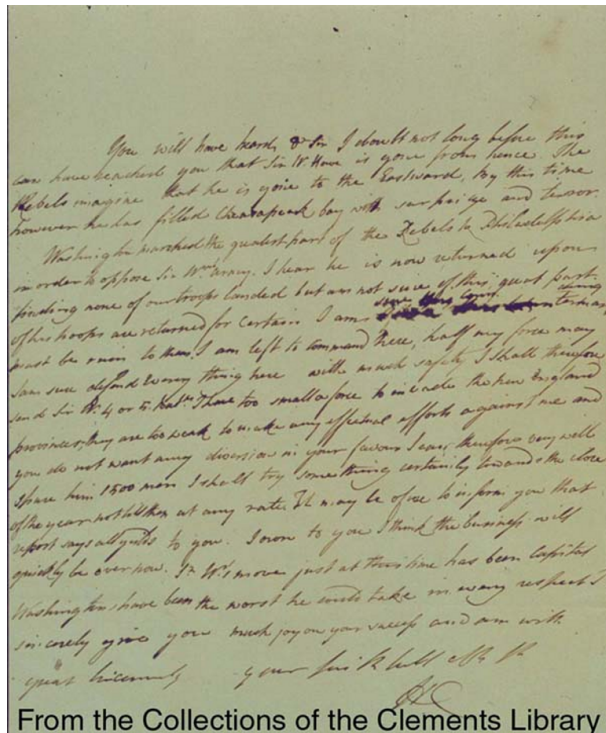 You will have heard, Dr Sir I doubt not long before this
can have reached you that Sir W. Howe is gone from hence. The
Rebels imagine that he is gone to the Eastward, By this time
however he has filled Chesapeak bay with surprize and terror.
Washington marched the greatest part of the Rebels to Philadelphia
in order to oppose Sir Wms army. I hear he is now returned upon
finding none of our troops landed but am not sure of this, great part
of his troops are returned for certain. I am sure this
must be ruin to them. I am left to command here, half my force may
I am sure defend every thing here with much safety I shall therefore
send Sir W. 4 or 5 Batns. I have too small a force to invade the New England
provinces, they are too weak to make any effectual efforts against me and
you do not want any diversion in your favour I can therefore very well
spare him 1500 men I shall try something certainly towards the close
of the year not till then at any rate. It may be of use to inform you that
report says all yields to you. I own to you I think the business will
quickly be over now. Sr W's move just at this time has been Capital
Washingtons have been the worst he could take in every respect I
sincerely give you much joy on your success and am with
great Sincerity your
HC
From the Collections of the Clements Library